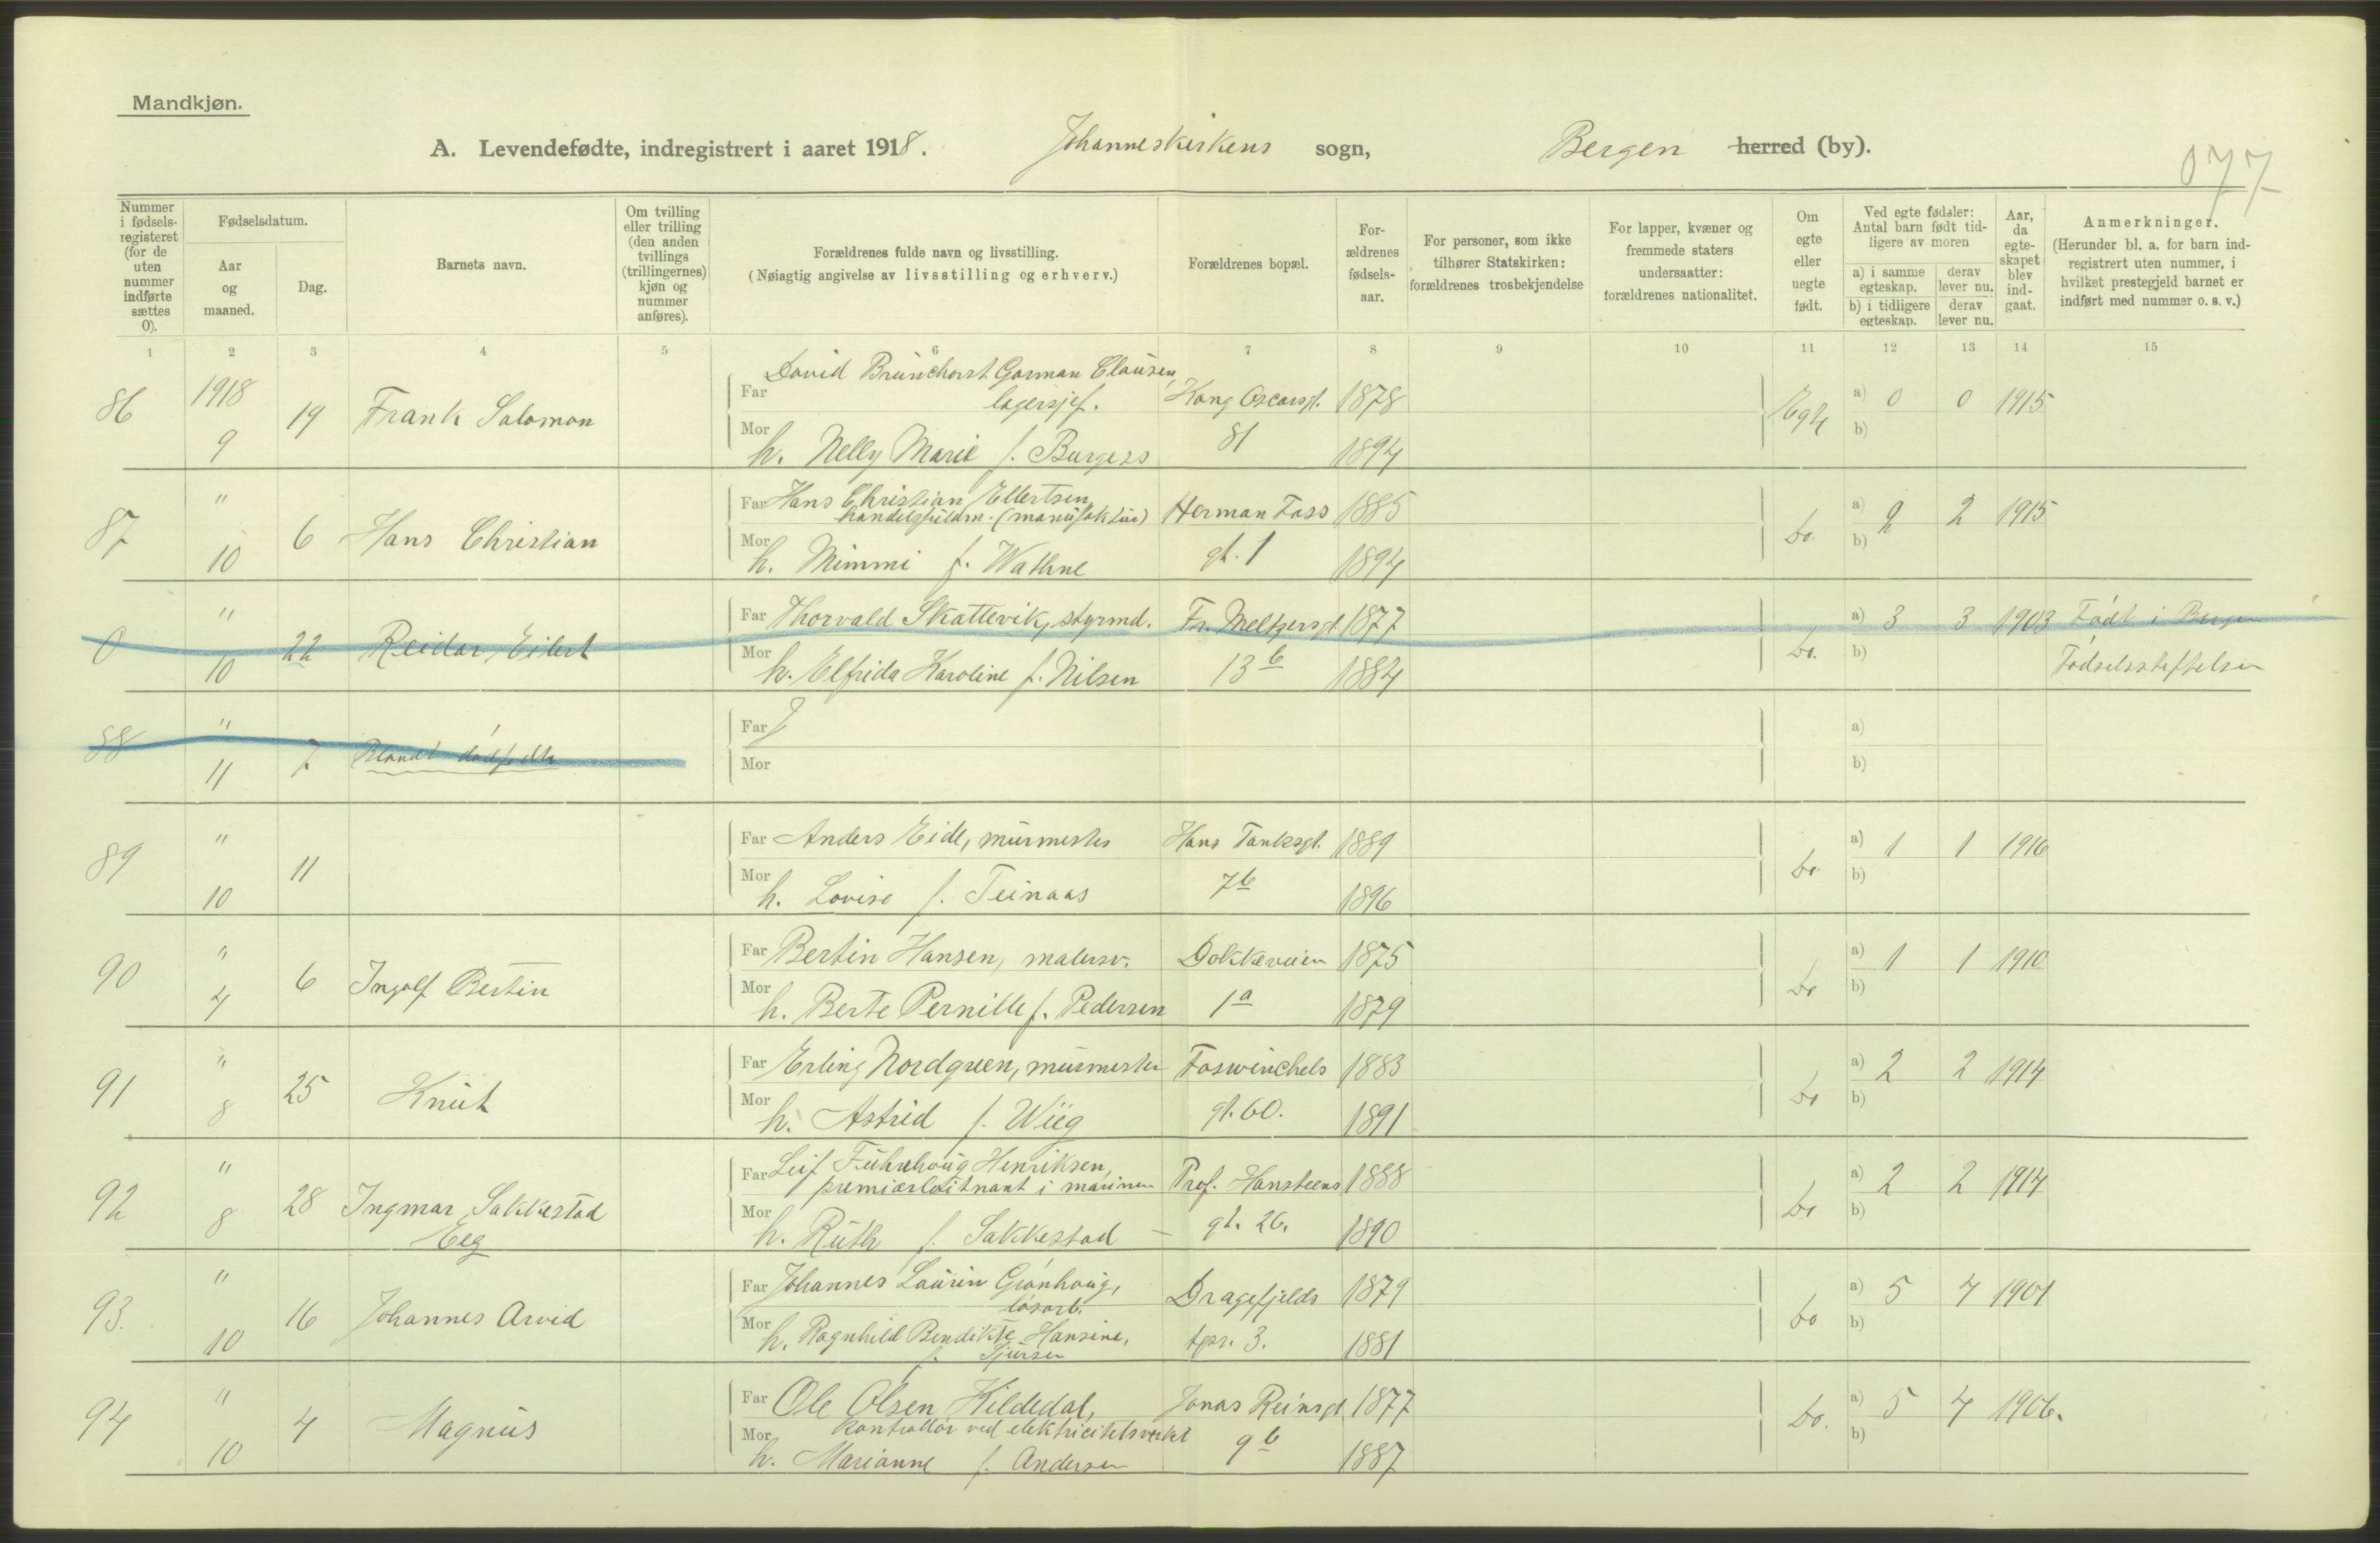 Mandkjøn.
A. Levendefødte, indregistrert i aaret 1918. Johanneskirkens sogn, Bergen herred (by).
077
Nummer i fødselsregisteret (for de uten nummer indførte sættes 0).
Fødselsdatum.
Aar og maaned.
Dag.
Barnets navn.
Om tvilling eller trilling (den anden tvillings (trillingernes) kjøn og nummer anføres).
Forældrenes fulde navn og livsstilling.
(Nøiagtig angivelse av livsstilling og erhverv.)
Forældrenes bopæl.
Forældrenes fødselsaar.
For personer, som ikke tilhører Statskirken: forældrenes trosbekjendelse
For lapper, kvæner og fremmede staters undersaatter: forældrenes nationalitet.
Om egte eller uegte født.
Ved egte fødsler: Antal barn født tidligere av moren
a) i samme egteskap. derav lever nu.
b) i tidligere egteskap. derav lever nu.
Aar, da egteskapet blev indgaat.
Anmerkninger.
(Herunder bl. a. for barn indregistrert uten nummer, i hvilket prestegjeld barnet er indført med nummer o. s. v.)
1 2 3 4 5 6 7 8 9 10 11 12 13 14 15
86 1918 9 19 Frank Salomon
Far David Brunchorst Garman Clausen, lagersjef. Kong Oscarsgt. 1878
Mor h. Nelly Marie f. Burgess 81 1894
Egte a) 0 0 1915
b)
87 " 10 6 Hans Christian
Far Hans Christian Ellertsen, handelsfuldm. (manufaktur) Herman Foss 1885
Mor h. Mimmi f. Wathne gt. 1 1894
do. a) 2 2 1915
b)
0 " 10 22 Reidar Eilert
Far Thorvald Skattevik, styrmd. Fr. Meltzersgt. 1877
Mor h. Elfrida Karoline f. Nilsen 13 b 1884
do. a) 3 3 1903 Født i Bergen
b) Fødselsstiftelse
88 " 11 7 Blandt dødfødte
Far
Mor
a)
b)
89 " 10 11
Far Anders Eide, murmester Hans Tanksgt. 1889
Mor h. Lovise f. Teinaas 7b 1896
do a) 1 1 1916
b)
90 " 4 6 Ingolf Bertin
Far Bertin Hansen, malersv. Dokkeveien 1875
Mor h. Berte Pernille f. Pedersen 1a 1879
do a) 1 1 1910
b)
91 " 8 25 Knut
Far Erling Nordgreen, murmester Foswinckels 1883
Mor h. Astrid f. Wiig gt. 60. 1891
do a) 2 2 1914
b)
92 " 8 28 Ingmar Sakkestad Eeg
Far Leif Henriksen, premierløitnant i marinen Prof. Hansteens 1888
Mor h. Ruth f. Sakkestad – gt. 26. 1890
do a) 2 2 1914
b)
93. " 10 16 Johannes Arvid
Far Johannes Laurin Grønhaug, løsarb. Dragefjelds 1879
Mor h. Ragnhild Bendikte Hansine, f. Sjursen tpr. 3. 1881
do a) 5 4 1901
b)
94 " 10 4 Magnus
Far Ole Olsen Kildedal, kontrollør ved elektricitetsverket Jonas Reinsgt. 1877
Mor h. Marianne f. Andersen 9 b 1887
do. a) 5 4 1906.
b)